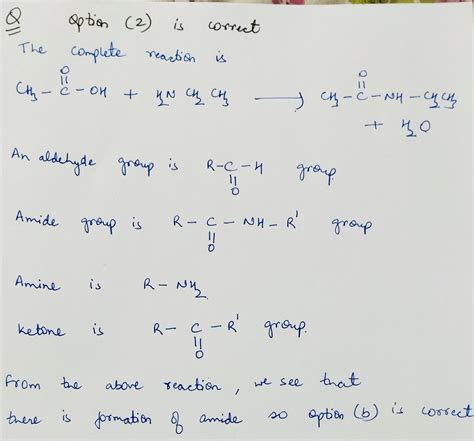 Q Option (2) is correct
The complete reaction is
O O
CH3 - C - OH + H2N CH2 CH3 → CH3 - C - NH - CH2CH3
+ H2O
An aldehyde group is R - C - H group.
O
Amide group is R - C - NH - R' group
O
Amine is R - NH2
Ketone is R - C - R' group.
O
From the above reaction, we see that
there is formation of amide so option (b) is correct